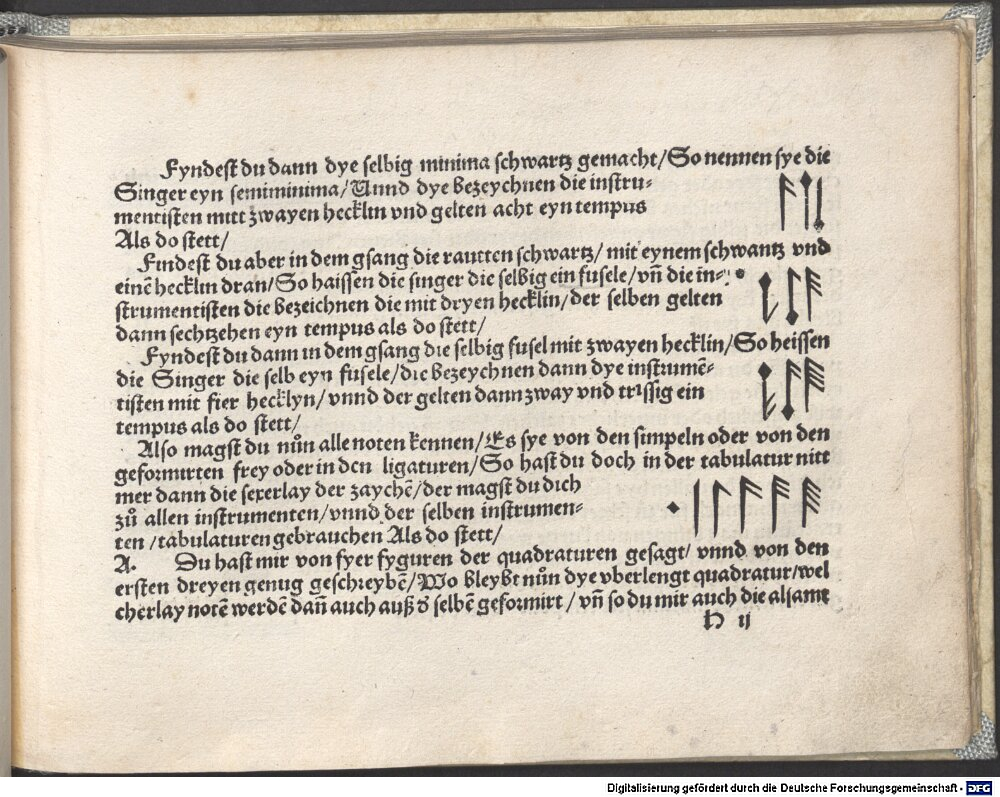 Fyndest du dann dye selbig minima schwartz gemacht/So nennen sye die
Singer eyn semiminima/Unnd dye bezeychnen die instru⸗
mentisten mitt zwayen hecklin vnd gelten acht eyn tempus
Als do stett/
Findest du aber in dem gsang die rautten schwartz/ mit eynem schwantz vnd
einē hecklin dran/So haissen die singer die selbig ein fusele/vn̄ die in⸗
strumentisten die bezeichnen die mit dryen hecklin/der selben gelten
dann sechtzehen eyn tempus als do stett/
Fyndest du dann in dem gsang die selbig fusel mit zwayen hecklin/So heissen
die Singer die selb eyn fusele/die bezeychnen dann dye instrumē⸗
tisten mit fier hecklyn/vnnd der gelten dann zway vnd trissig ein
tempus als do stett/
Also magst du nůn alle noten kennen/Es sye von den simpeln oder von den
geformirten frey oder in den ligaturen/So hast du doch in der tabulatur nitt
mer dann die sexerlay der zaychē/der magst du dich
zů allen instrumenten/vnnd der selben instrumen⸗
ten/tabulaturen gebrauchen Als do stett/
A. Du hast mir von fyer fyguren der quadraturen gesagt/ vnnd von den
ersten dreyen genug geschreybē/Wo bleybt nůn dye vberlengt quadratur/wel
cherlay notē werdē dan̄ auch auß d̕ selbē geformirt/vn̄ so du mir auch die alsamt
H ij
Digitalisierung gefördert durch die Deutsche Forschungsgemeinschaft - DFG